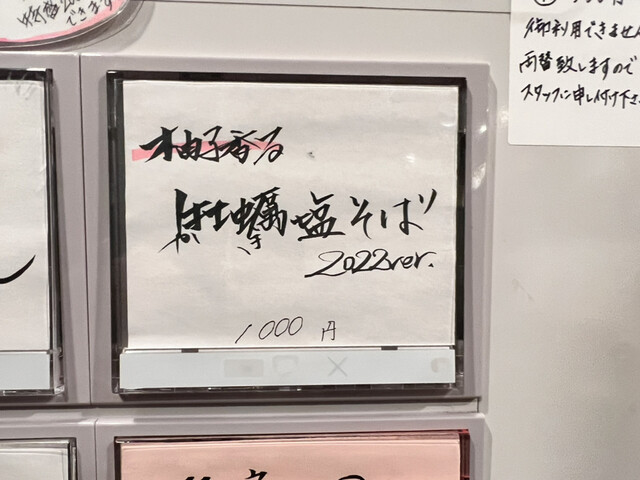 できます
柚子香る
牡蠣塩そば
かき
2022ver.
1000円
御利用できません
両替致しますので
スタッフに申し付け下さい